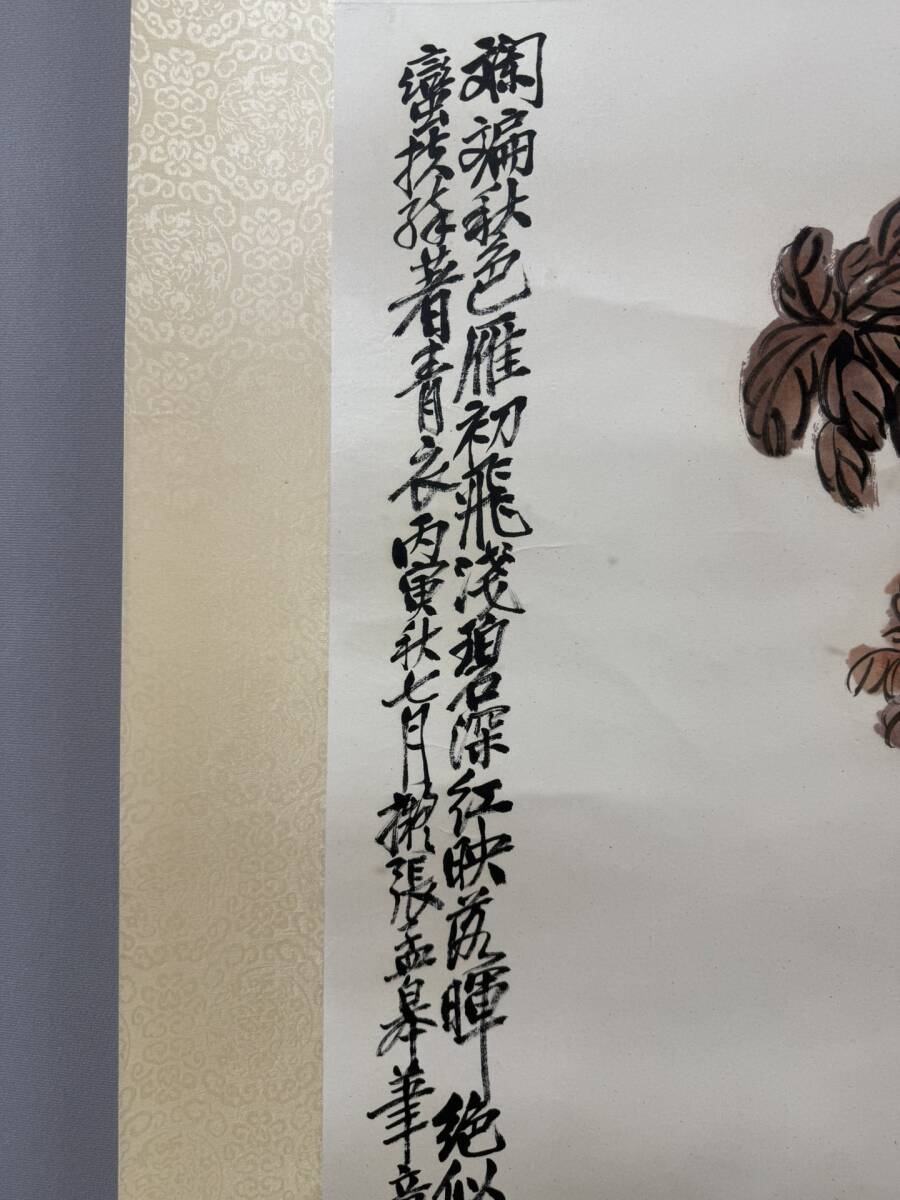 斕斒秋色雁初飛淺碧深紅映落暉絕似
蠻扶絳著青衣丙寅秋七月擬張孟皋筆意